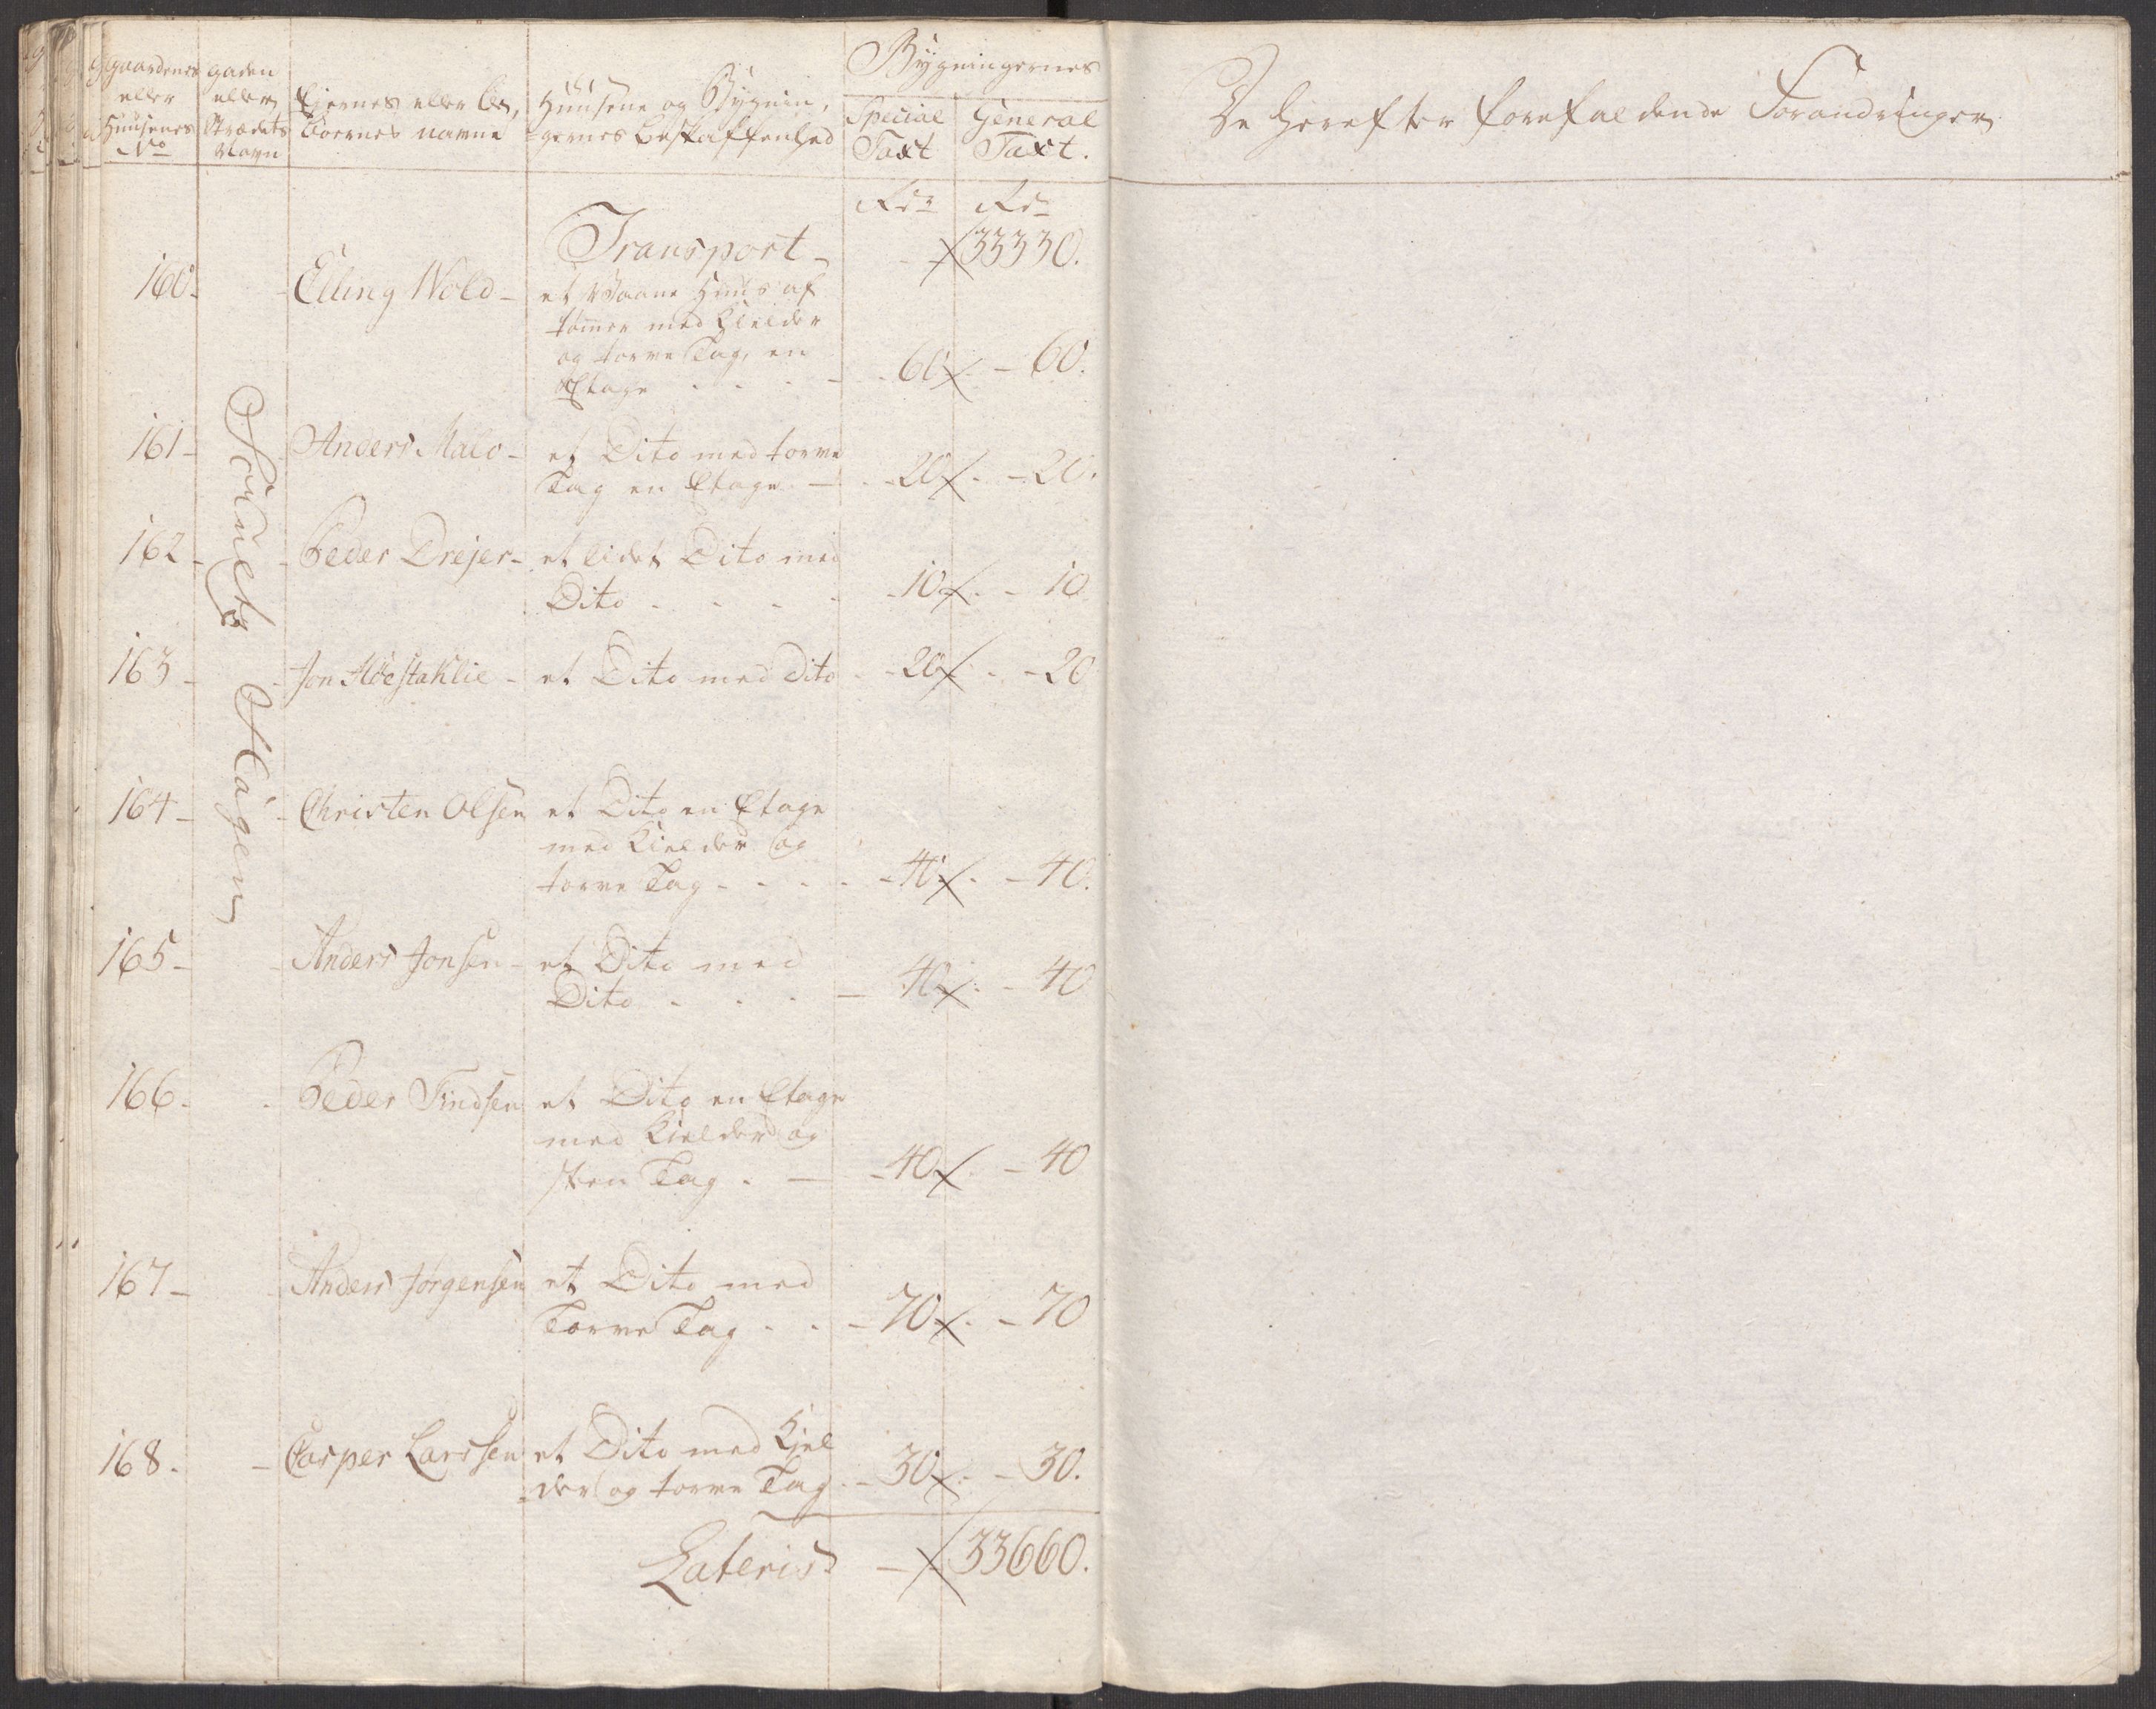 Gaardenes
eller
Huusenes
No
gaden
eller
Strædets
Navn
Eiernes eller Be,
boernes navne
Huusene og Bygnin,
gernes Beskaffenhed
Bygningernes
Special
Taxt
General
Taxt.
De herefter forefaldende Forandringer
Rdr Rdr
Transport - 33330.
160. Elling Wold - et Vaane Huus af
tømmer med Kielder
og torve Tag, en
Etage - 60 - 60.
161 - Anders Malo - et Dito med torve
Tag en Etage - 20 - 20.
162 - Peder Drejer - et lidet Dito med
Dito - 10 - 10
163 - Jon Høestaklie - et Dito med dito - 20 - 20
164 - Christen Olsen et Dito en Etage
med Kielder og
torve Tag - 40 - 40.
165 - Anders Jonsen - et Dito med
Dito - 40 - 40
166 - Peder Findsen et Dito en Etage
med Kielder og
steen Tag - 40 - 40
167 - Anders Jørgensen et Dito med
Torve Tag - 70 - 70
168. - Casper Larssen et Dito med Kiel
der og torve Tag - 30 - 30.
Lateris - 33660.